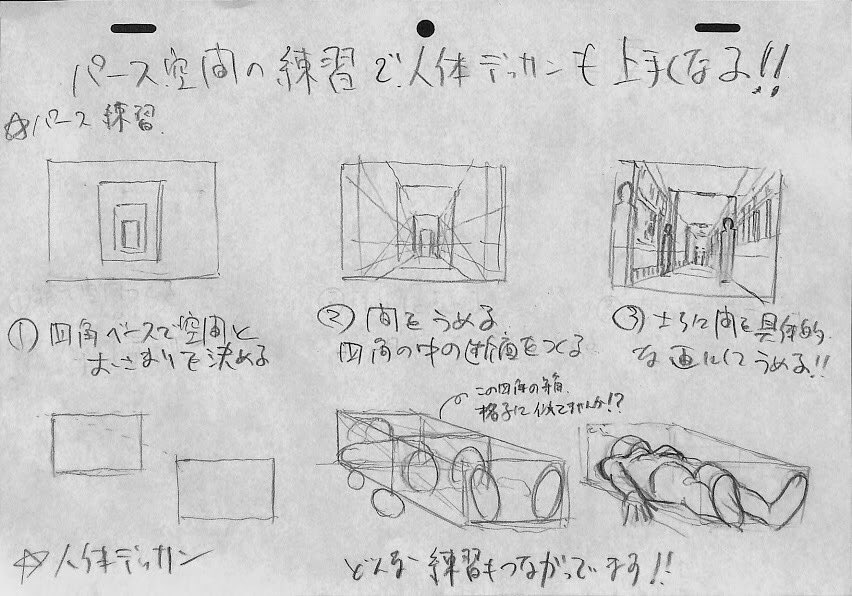 パース空間の練習で人体デッサンも上手くなる!!
☆パース練習
① 四角ベースで空間と
おさまりを決める
② 間をうめる
四角の中の断面をつくる
③ さらに間を具体的
な画にしてうめる!!
この四角の箱、
格子に似てませんか!?
☆人体デッサン
どんな練習もつながってます!!